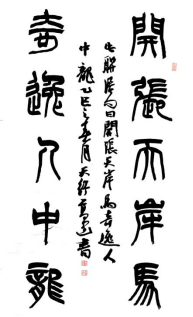 開張天岸馬
聯句曰開張天岸馬奇逸人
中龍乙巳之春月書
奇逸人中龍